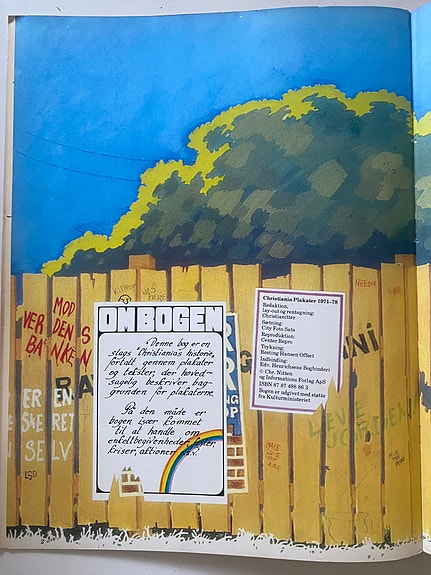 Kilroy
WAS
HERE
OM BOGEN
"Denne bog er en
slags "Christianias historie,
fortalt gennem plakater
og tekster, der hoved-
sagelig beskriver bag-
grunden for plakaterne.
På den måde er
bogen især kommet
til at handle om
enkeltbegivenheder, fester,
kriser, aktioner o.s.v.
Christiania Plakater 1971-78
Redaktion,
lay-out og rentegning:
Christianitter
Sætning:
City Foto Sats
Reproduktion:
Center Repro
Trykning:
Resting Hansen Offset
Indbinding:
Edv. Henrichsens Bogbinderi
© Chr. Nitten
og Informations Forlag ApS
ISBN 87 87 498 86 3
Bogen er udgivet med støtte
fra Kulturministeriet
MOD
DEN
SELV
LSD
MAKE
LOVE
NOT